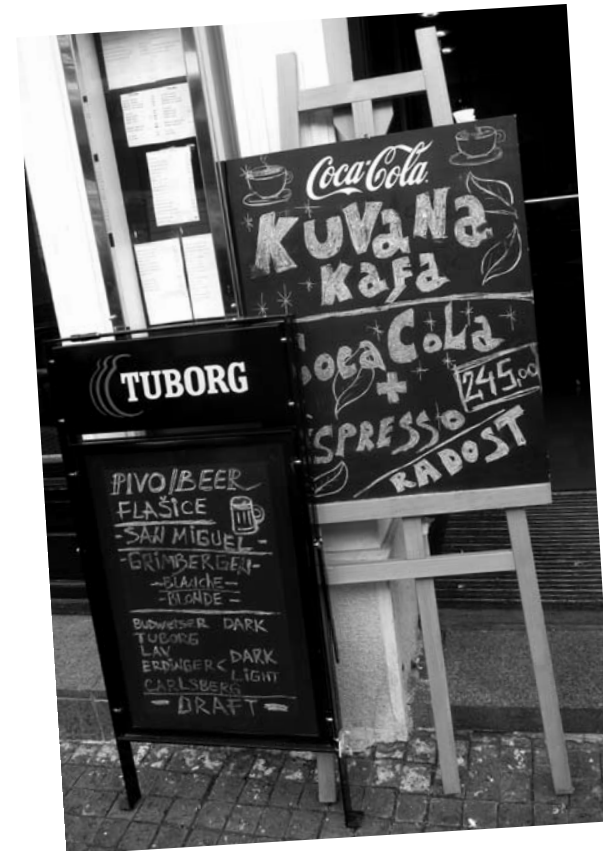 Coca-Cola
KUVANA
KAFA
Coca Cola
+
ESPRESSO
245,00
RADOST
TUBORG
PIVO/BEER
FLAŠICE
-SAN MIGUEL-
-GRIMBERGEN-
-BLANCHE-
-BLONDE-
BUDWEISER DARK
TUBORG
LAV
ERDINGER < DARK
LIGHT
CARLSBERG
- DRAFT -